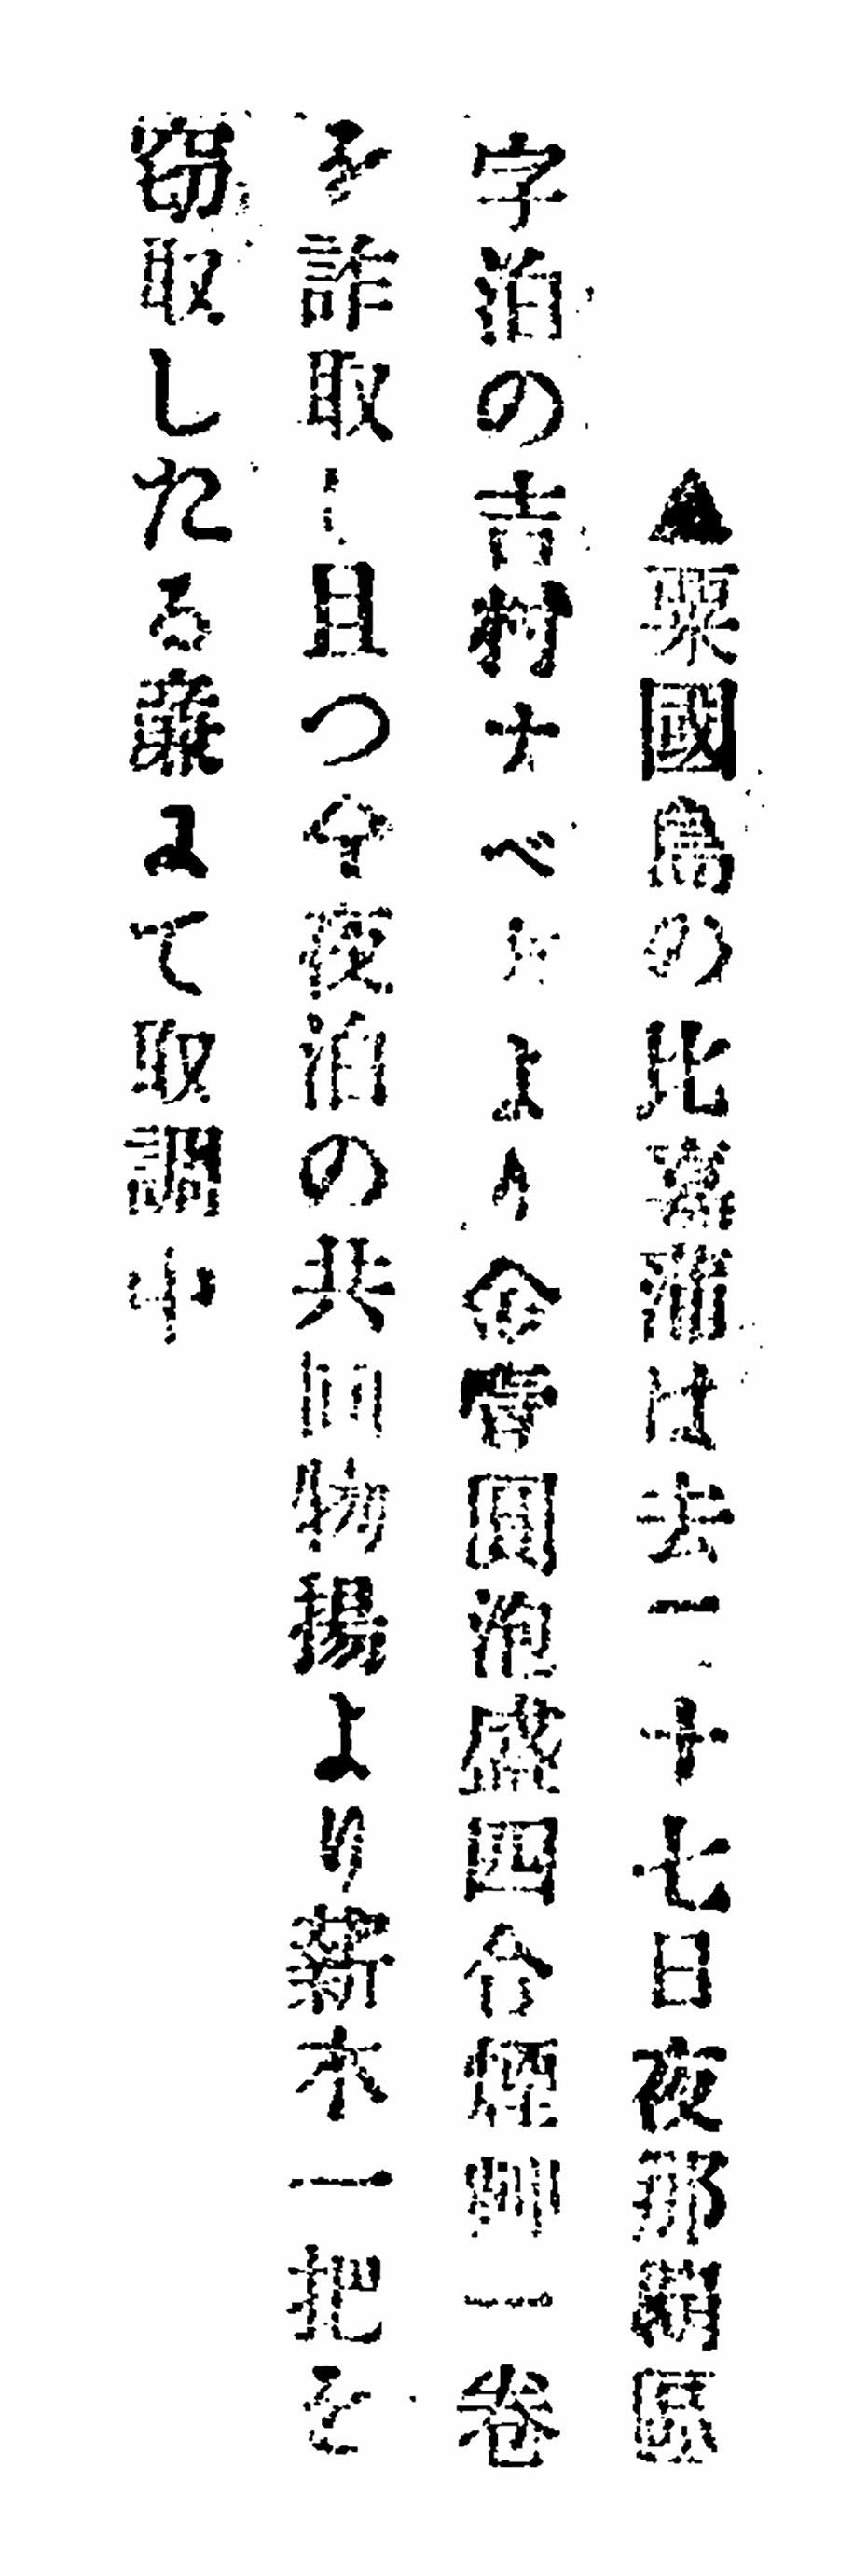 ▲粟國島の比嘉蒲は去二十七日夜那覇區
字泊の吉村ナベとより金壹圓泡盛四合煙艸一卷
を詐取し且つ今夜泊の共同物揚より薪木一把を
窃取したる廉にて取調中